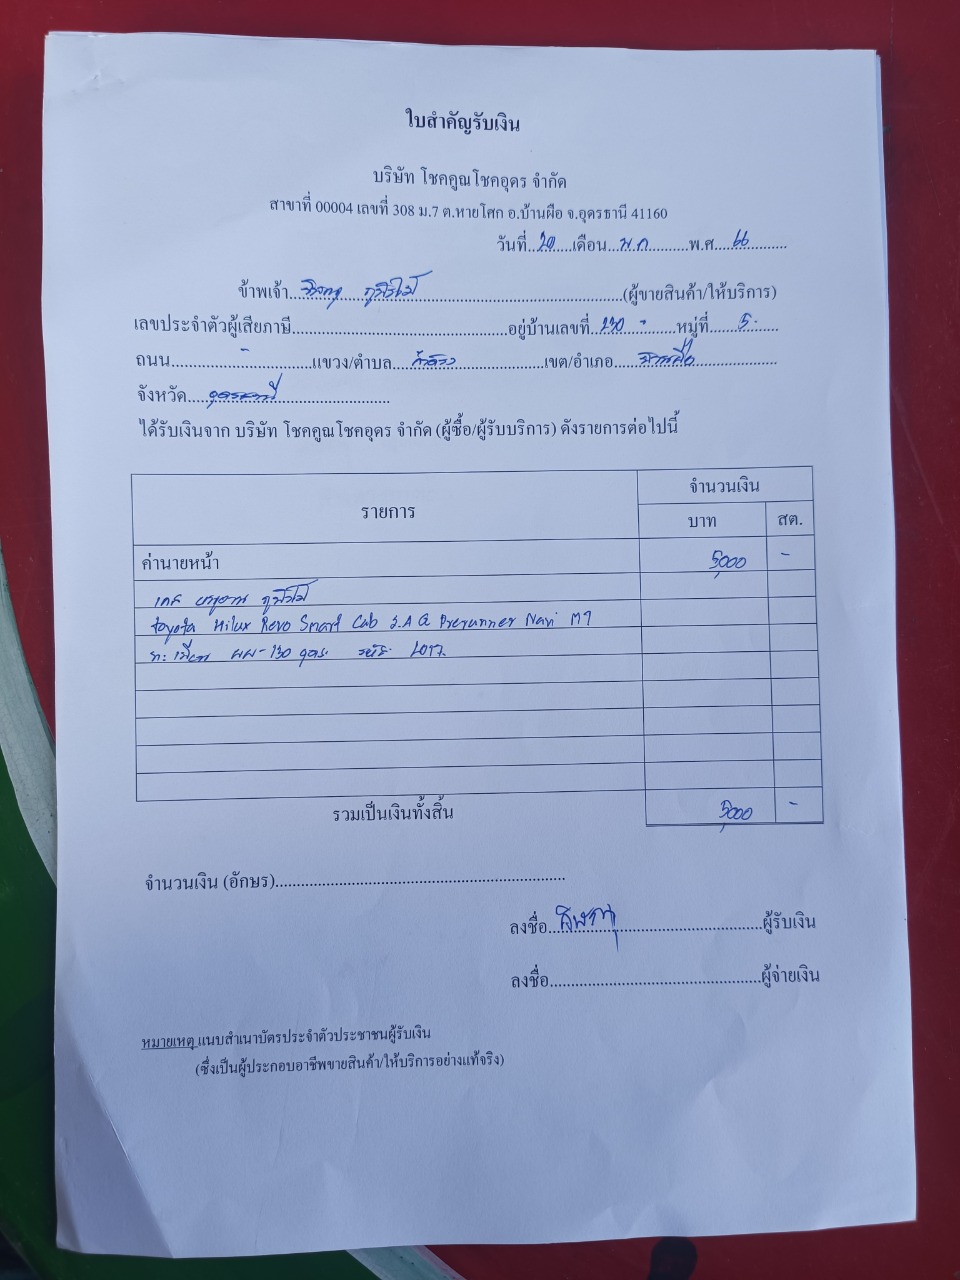 ใบสำคัญรับเงิน
บริษัท โชคคูณโชคอุดร จำกัด
สาขาที่ 00004 เลขที่ 308 ม.7 ต.หายโศก อ.บ้านผือ จ.อุดรธานี 41160
วันที่..20..เดือน..ม.ค...พ.ศ..66..
ข้าพเจ้า....(ผู้ขายสินค้า/ให้บริการ)
เลขประจำตัวผู้เสียภาษี....อยู่บ้านเลขที่..230 -..หมู่ที่..5..
ถนน..-..แขวง/ตำบล....เขต/อำเภอ..บ้านผือ..
จังหวัด..อุดรธานี..
ได้รับเงินจาก บริษัท โชคคูณโชคอุดร จำกัด (ผู้ซื้อ/ผู้รับบริการ) ดังรายการต่อไปนี้
รายการ จำนวนเงิน
บาท สต.
ค่านายหน้า 5,000 -
เคส
Toyota Hilux Revo Smart Cab 2.4 G Prerunner Navi MT
ทะเบียน ผผ-130 อุดร 2017
รวมเป็นเงินทั้งสิ้น 5,000 -
จำนวนเงิน (อักษร)....
ลงชื่อ....ผู้รับเงิน
ลงชื่อ....ผู้จ่ายเงิน
หมายเหตุ แนบสำเนาบัตรประจำตัวประชาชนผู้รับเงิน
(ซึ่งเป็นผู้ประกอบอาชีพขายสินค้า/ให้บริการอย่างแท้จริง)